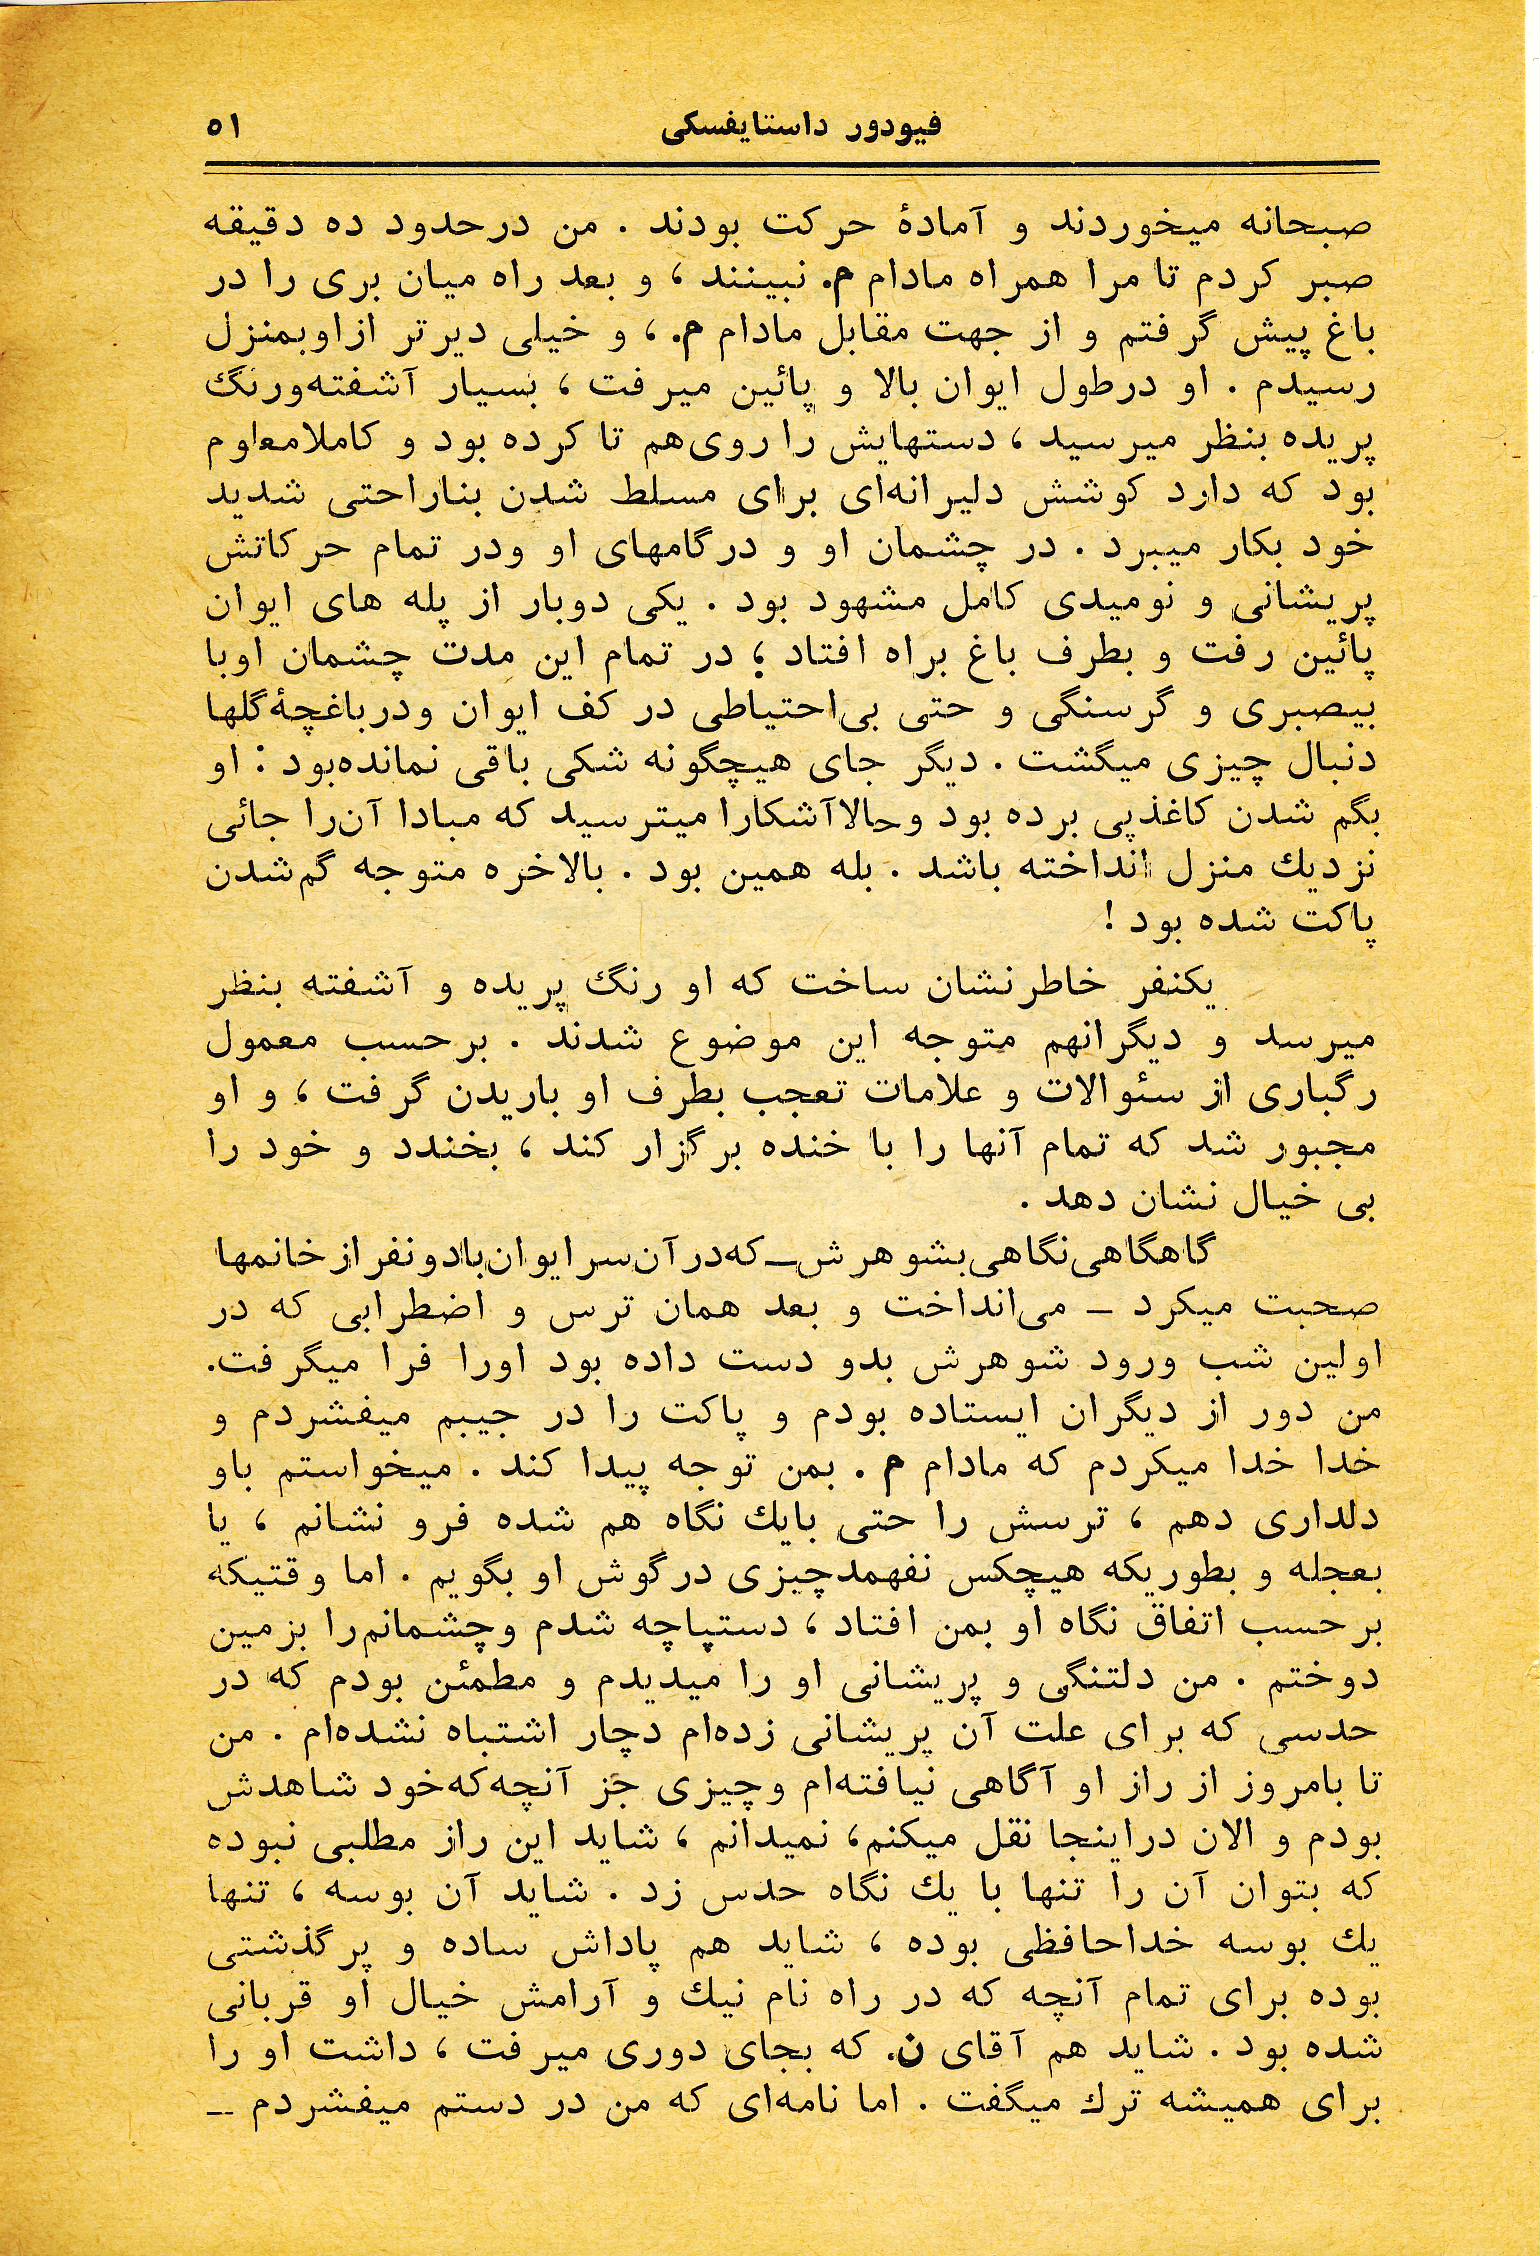 فیودور داستایفسکی ۵۱
صبحانه میخوردند و آمادهٔ حرکت بودند . من درحدود ده دقیقه
صبر کردم تا مرا همراه مادام م. نبینند ، و بعد راه میان بری را در
باغ پیش گرفتم و از جهت مقابل مادام م. ، و خیلی دیرتر ازاوبمنزل
رسیدم . او درطول ایوان بالا و پائین میرفت ، بسیار آشفته‌ورنگ
پریده بنظر میرسید ، دستهایش را روی‌هم تا کرده بود و کاملامعلوم
بود که دارد کوشش دلیرانه‌ای برای مسلط شدن بناراحتی شدید
خود بکار میبرد . در چشمان او و درگامهای او ودر تمام حرکاتش
پریشانی و نومیدی کامل مشهود بود . یکی دوبار از پله های ایوان
پائین رفت و بطرف باغ براه افتاد ؛ در تمام این مدت چشمان اوبا
بیصبری و گرسنگی و حتی بی‌احتیاطی در کف ایوان ودرباغچهٔ‌گلها
دنبال چیزی میگشت . دیگر جای هیچگونه شکی باقی نمانده‌بود : او
بگم شدن کاغذپی برده بود وحالاآشکارا میترسید که مبادا آن‌را جائی
نزدیك منزل انداخته باشد . بله همین بود . بالاخره متوجه گم‌شدن
پاکت شده بود !
یکنفر خاطرنشان ساخت که او رنگ پریده و آشفته بنظر
میرسد و دیگرانهم متوجه این موضوع شدند . برحسب معمول
رگباری از سئوالات و علامات تعجب بطرف او باریدن گرفت ، و او
مجبور شد که تمام آنها را با خنده برگزار کند ، بخندد و خود را
بی خیال نشان دهد .
گاهگاهی‌نگاهی‌بشوهرش–که‌درآن‌سرایوان‌بادونفرازخانمها
صحبت میکرد – می‌انداخت و بعد همان ترس و اضطرابی که در
اولین شب ورود شوهرش بدو دست داده بود اورا فرا میگرفت.
من دور از دیگران ایستاده بودم و پاکت را در جیبم میفشردم و
خدا خدا میکردم که مادام م . بمن توجه پیدا کند . میخواستم باو
دلداری دهم ، ترسش را حتی بایك نگاه هم شده فرو نشانم ، یا
بعجله و بطوریکه هیچکس نفهمدچیزی درگوش او بگویم . اما وقتیکه
برحسب اتفاق نگاه او بمن افتاد ، دستپاچه شدم وچشمانم‌را بزمین
دوختم . من دلتنگی و پریشانی او را میدیدم و مطمئن بودم که در
حدسی که برای علت آن پریشانی زده‌ام دچار اشتباه نشده‌ام . من
تا بامروز از راز او آگاهی نیافته‌ام وچیزی جز آنچه‌که‌خود شاهدش
بودم و الان دراینجا نقل میکنم، نمیدانم ، شاید این راز مطلبی نبوده
که بتوان آن را تنها با یك نگاه حدس زد . شاید آن بوسه ، تنها
یك بوسه خداحافظی بوده ، شاید هم پاداش ساده و پرگذشتی
بوده برای تمام آنچه که در راه نام نیك و آرامش خیال او قربانی
شده بود . شاید هم آقای ن. که بجای دوری میرفت ، داشت او را
برای همیشه ترك میگفت . اما نامه‌ای که من در دستم میفشردم –